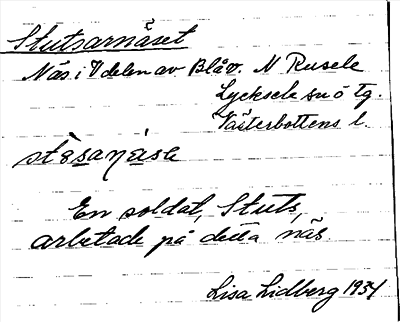 Stutsarnäset
Näs i V delen av Blåv. N Rusele
Lycksele sn ö tg.
Västerbottens l.
En soldat, Stuts,
arbetade på detta näs.
Lisa Lidberg 1934